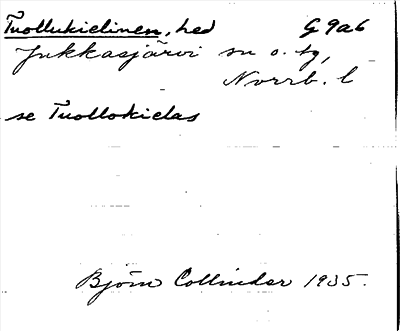 Tuollukielinen, hed G 9a6
Jukkasjärvi sn o. tg,
Norrb. l
se Tuollokielas
Björn Collinder 1935.